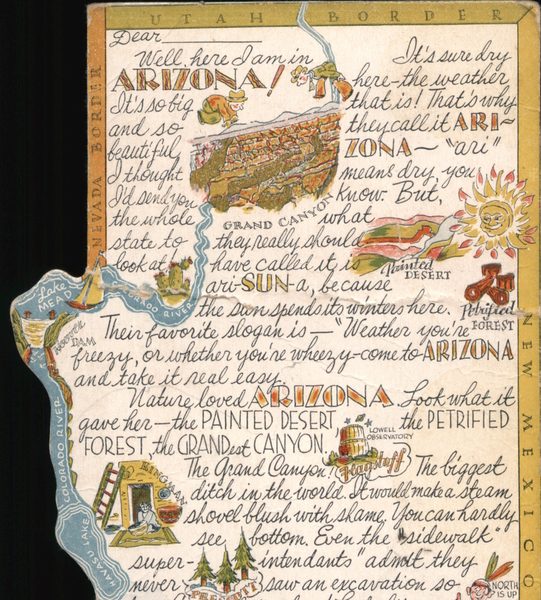 UTAH BORDER
NEVADA BORDER
NEW MEXICO
Dear
Well, here I am in
ARIZONA!
It's so big
and so
beautiful
I thought
I'd send you
the whole
state to
look at
It's sure dry
here-the weather
that is! That's why
they call it ARI-
ZONA- "ari"
means dry, you
know. But,
what
they really should
have called it, is
ari-SUN-a, because
the sun spends its winters here.
GRAND CANYON
Painted
DESERT
Petrified
FOREST
Lake
MEAD
COLORADO RIVER
DAM
Their favorite slogan is-"Weather you're
freezy, or whether you're wheezy-come to ARIZONA
and take it real easy.
Nature loved ARIZONA. Look what it
gave her-the PAINTED DESERT the PETRIFIED
FOREST the GRANDest CANYON.
LOWELL
OBSERVATORY
Flagstaff
COLORADO RIVER
KINGMAN
HAVASU LAKE
The Grand Canyon! The biggest
ditch in the world. It would make a steam
shovel blush with shame. You can hardly
see bottom. Even the "sidewalk
super- intendants" admit they
never saw an excavation so
PRESCOTT
NORTH
IS UP